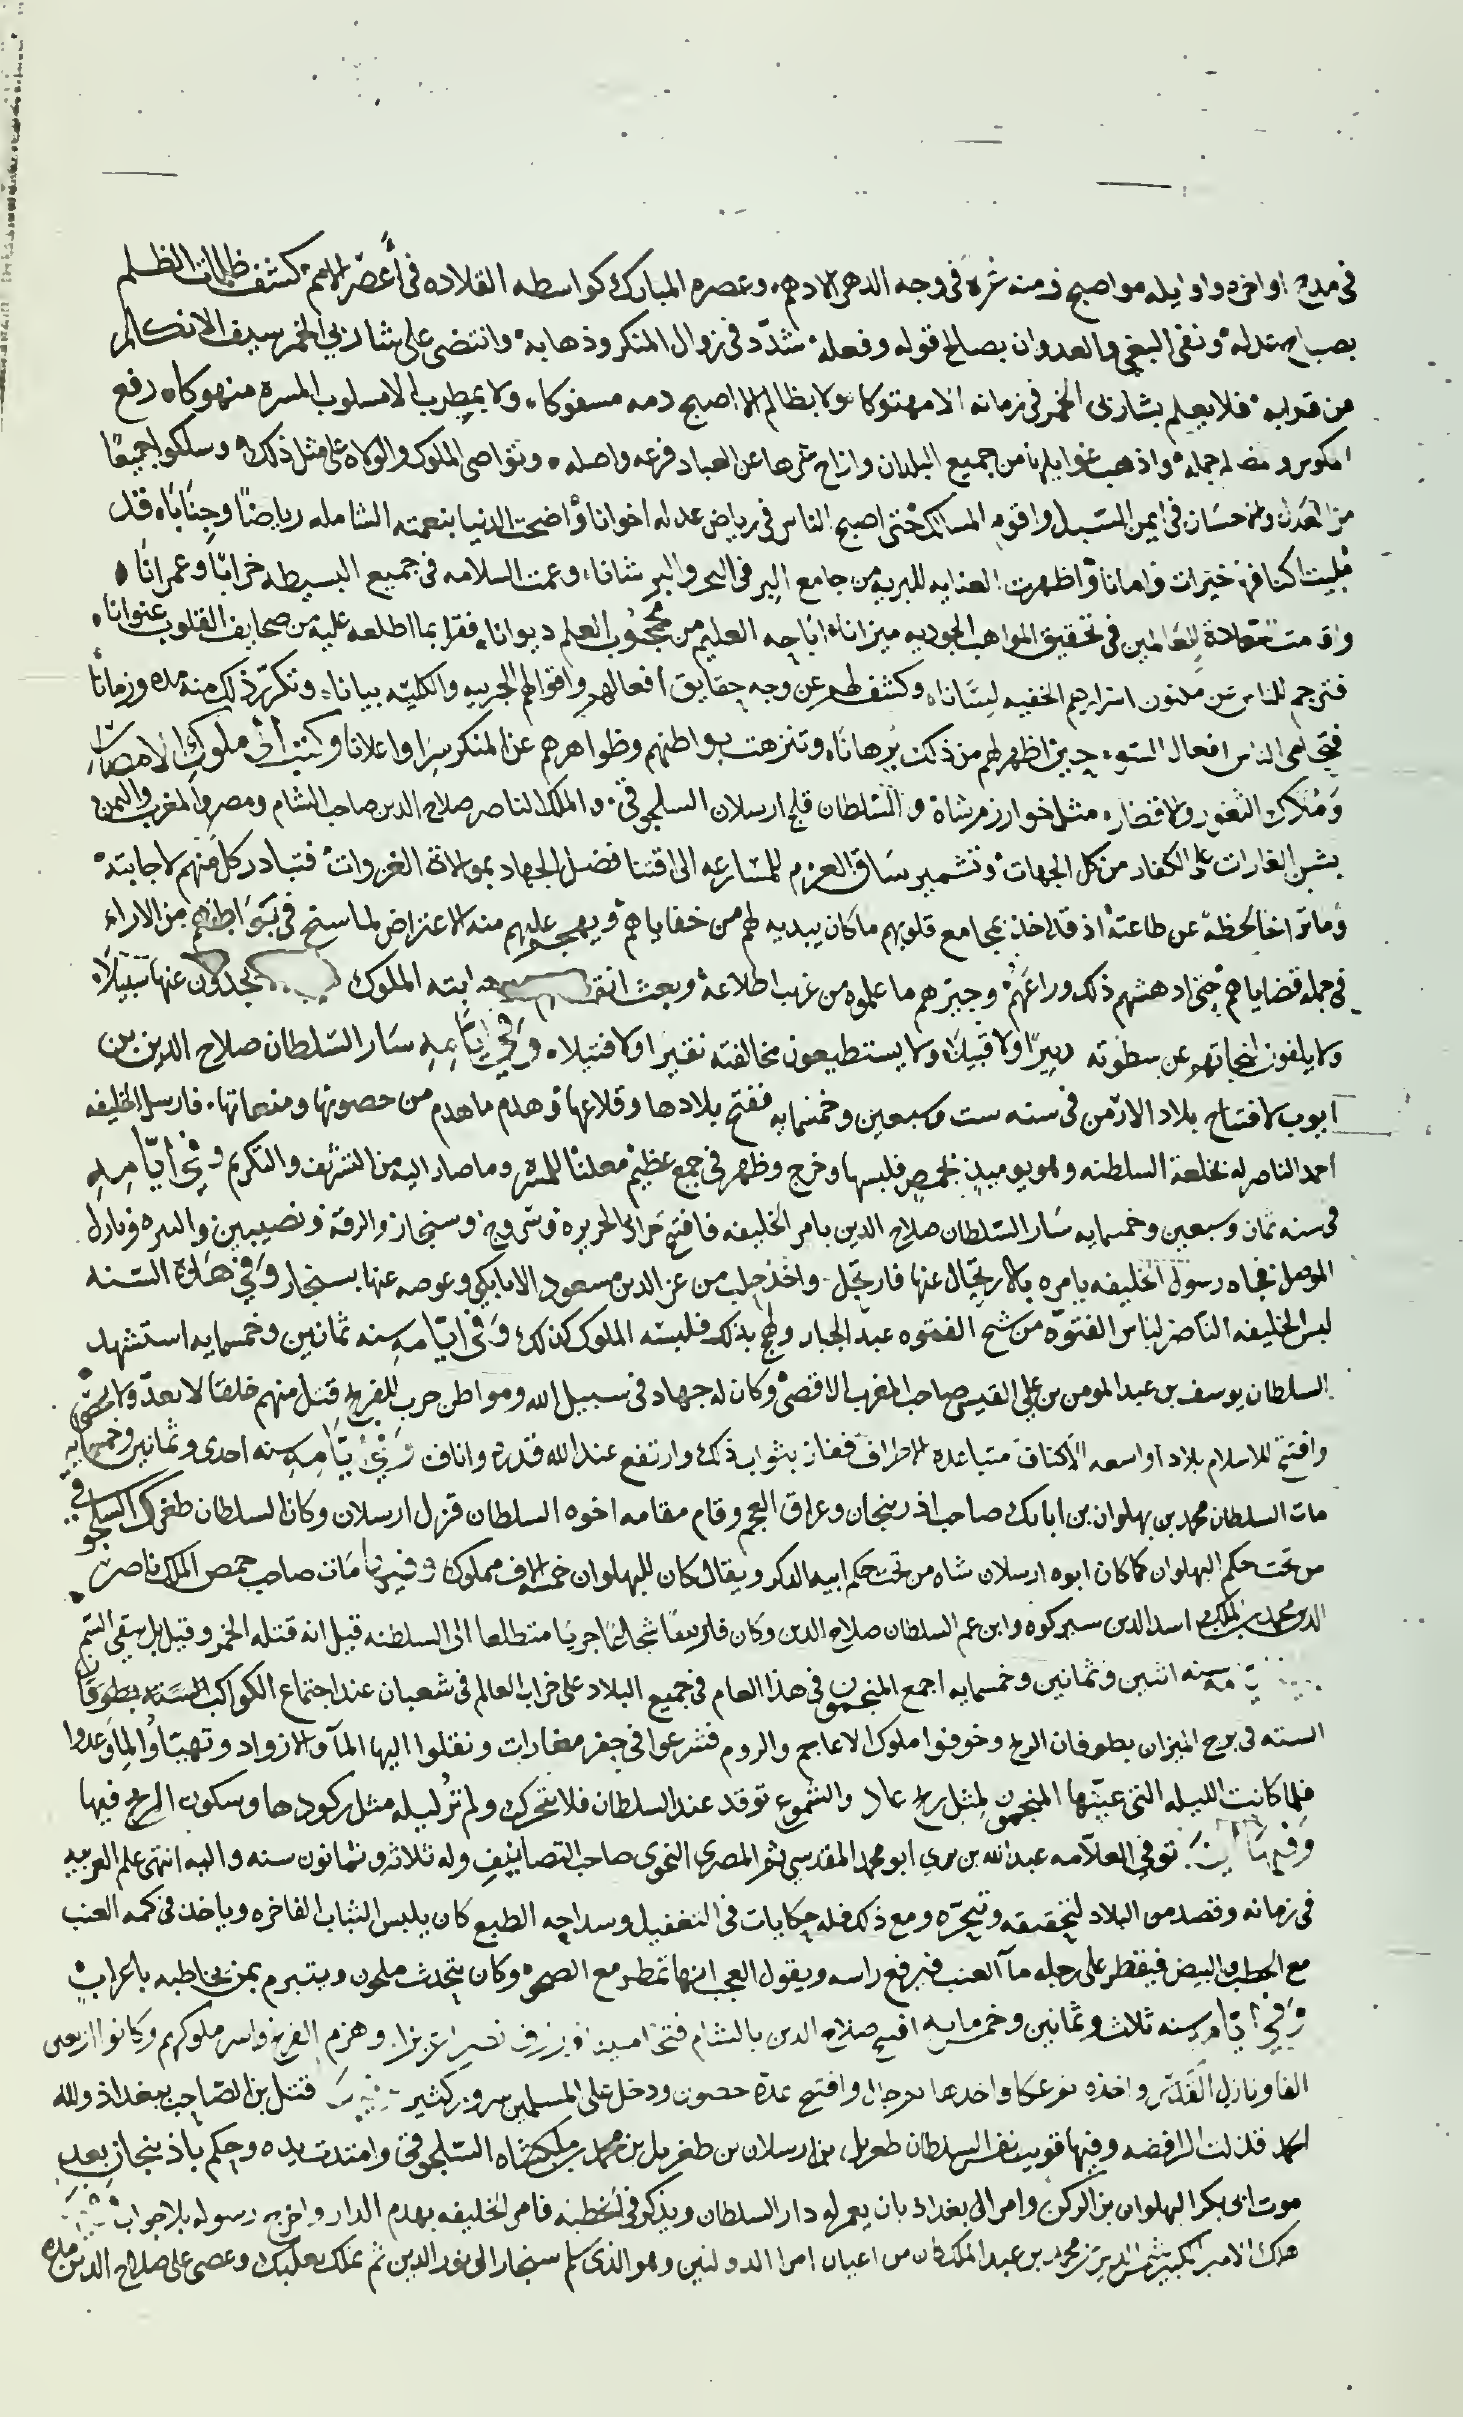 في مدح اواخره واوايله مواصبح زمنه غرة في وجه الدهر الادهم وعصره المبارك كواسطه القلاده في أعصر الامم كشف ظلمات الظلم
بصباح عدله ونفى البغي والعدوان بصالح قوله وفعله شدّد في زوال المنكر وذهابه وانتضى على شاربي الخمر سيف الانكار
من قرابه فلا يعلم بشارب الخمر في زمانه الا مهتوكا ولا بظالم الا اصبح دمه مسفوكا ولا بمطرب الا مسلوب المسرة منهوكا رفع
المكوس جمله واذهب غوايلها من جميع البلدان وازاح شرها عن العباد فرعه واصله وتواصى الملوك والولاة على مثل ذلك وسلكوا جميعًا
من العدل والاحسان في ايمن السبل واقوم المسالك حتى اصبح الناس في رياض عدله اخوانا واضحت الدنيا بنعمته الشامله رياضًا وجنانًا قد
مليت اكنافها خيرات وامانا واظهرت العنايه للبريه من جامع البر في البحر والبر شانا وعمت السلامه في جميع البسيطه خرابًا وعمرانًا
واقامت للعالمين في تحقيق المواهب الجوديه ميزانا اباحه العليم من محجوب العلم ديوانا فقرا بما اطلعه عليه من صحايف القلوب عنوانا
فترجم للناس عن مكنون اسرارهم الخفيه لسانا وكشف لهم عن وجه حقايق افعالهم واقوالهم الجزييه والكليه بيانا وتكرر ذلك منه مده وزمانًا
افعال السو حين اظهر لهم من ذلك برهانا وتنزهت بواطنهم وظواهرهم عن المنكر سرا واعلانا وكتب الى ملوك الامصار
وملاك الثغور والاقطار مثل خوارزمشاه والسلطان قلج ارسلان السلجوقي والملك الناصر صلاح الدين صاحب الشام ومصر والمغرب واليمن
بشن الغارات على الكفار من كل الجهات وتشمير ساق العزم للمسارعه الى اقتنا فضل الجهاد بموالاة الغزوات فتبادر كل منهم لاجابته
وما تراخا لحظة عن طاعته اذ قد اخذ بمجامع قلوبهم ما كان يبديه لهم من خفاياهم ويهجم عليهم منه الاعتراض لما سنح في بواطنهم من الاراء
في جمله قضاياهم حتى ادهشهم ذلك وراعهم وحيرهم ما علموه من غريب اطلاعه وبعث الملوك يجدون عنها سبيلا
ولا يلفون لنجاتهم عن سطوته دبيرًا ولا قبيلا ولا يستطيعون مخالفته نقيرا ولا فتيلا وفي ايامه سار السلطان صلاح الدين بن
ايوب لافتتاح بلاد الارمن في سنه ست وسبعين وخمسمايه ففتح بلادها وقلاعها وهدم ما هدم من حصونها ومنعاتها فارسل الخليفه
احمد الناصر له بخلعة السلطنه وهو يوميذ بحمص فلبسها وخرج وظهر في جمع عظيم معلنا للمسرة وما صار اليه من التشريف والتكريم وفي أيامه
في سنه ثمان وسبعين وخمسمايه سار السلطان صلاح الدين بامر الخليفه فافتح حران الجزيره وسروج وسنجار والرقة ونصيبين والبيره ونازل
الموصل فجاه رسول الخليفه يامره بالارتحال عنها فارتحل واخذ حلب من عز الدين مسعود الاتابكي وعوضه عنها بسنجار وفي هذه السنه
لبس الخليفه الناصر لباس الفتوة من شيخ الفتوه عبد الجبار ولهج بذلك فلبسته الملوك كذلك وفي ايامه سنه ثمانين وخمسمايه استشهد
السلطان يوسف بن عبد المومن بن علي القيسي صاحب المغرب الاقصى وكان له جهاد في سبيل الله ومواطن حرب للفرنج قتل منهم خلقا لا يعد ولا يحصى
وافتتح للاسلام بلادا واسعه الاكناف متباعده الاطراف ففاز بثواب ذلك وارتفع عند الله قدره واناف وفي ايامه سنه احدى وثمانين وخمسمايه
مات السلطان محمد بن بهلوان بن اتابك صاحب اذربيجان وعراق العجم وقام مقامه اخوه السلطان قزل ارسلان وكان السلطان طغرلك السلجوقي
من تحت حكم البهلوان كما كان ابوه ارسلان شاه من تحت حكم ابيه الدكر ويقال كان للبهلوان خمسة الاف مملوك وفيها مات صاحب حمص الملك ناصر
الدين محمد بن الملك اسد الدين سيركوه وابن عم السلطان صلاح الدين وكان فارسًا شجاعًا جريا متطلعا الى السلطنه قيل انه قتله الخمر وقيل بل سقي السم
سنه اثنين وثمانين وخمسمايه اجمع المنجمون في هذا العام في جميع البلاد على خراب العالم في شعبان عند اجتماع الكواكب السته بطوفان
السته في برج الميزان بطوفان الريح وخوفوا ملوك الاعاجم والروم فشرعوا في حفر مغارات ونقلوا اليها المآ والازواد وتهيّاوا لما وعدوا
فلما كانت الليله التي عيّنها المنجمون لمثل ريح عاد والشموع توقد عند السلطان فلا تتحرك ولم تر ليله مثل ركودها وسكون الريح فيها
وفيها توفي العلامه عبد الله بن بري ابو محمد المقدسي ثم المصري النحوي صاحب التصانيف وله ثلاثة وثمانون سنه واليه انتهى علم العربيه
في زمانه وقصد من البلاد لتحقيقه وتبحّره ومع ذلك فله حكايات في التغفيل وسذاجه الطبع كان يلبس الثياب الفاخره وياخذ في كمه العنب
مع الحطب والبيض فيقطر على رجله مآ العنب فيرفع راسه ويقول العجب انها تمطر مع الصحو وكان يتحدث ملحون ويتبرم بمن يخاطبه باعراب
وفي ايامه سنه ثلاث وثمانين وخمسمايه افتتح صلاح الدين بالشام فتحا مبينا ورزق نصرا عزيزا وهزم الفرنج واسر ملوكهم وكانوا اربعين
الفا ونازل القدس واخذه ثم عكا واخذها ثم جال وافتتح عدة حصون ودخل على المسلمين سرور كثير وفيها قتل بن الصاحب ببغداذ ولله
الحمد فذلت الرافضه وفيها قويت نفس السلطان طغريل بن ارسلان بن طغريل بن محمد بن ملكشاه السلجوقي وامتدت يده وحكم باذربيجان بعد
موت ابي بكر البهلوان بن الدكز وامر الى بغداد بان يعمر له دار السلطان ويذكر في الخطبه فامر الخليفه بهدم الدار واخرج رسوله بلا جواب
هلك الامير الكبير شمس الدين محمد بن عبد الملك كان من اعيان امرا الدولتين وهو الذي سلم سنجار الى نور الدين ثم تملك بعلبك وعصى على صلاح الدين مده